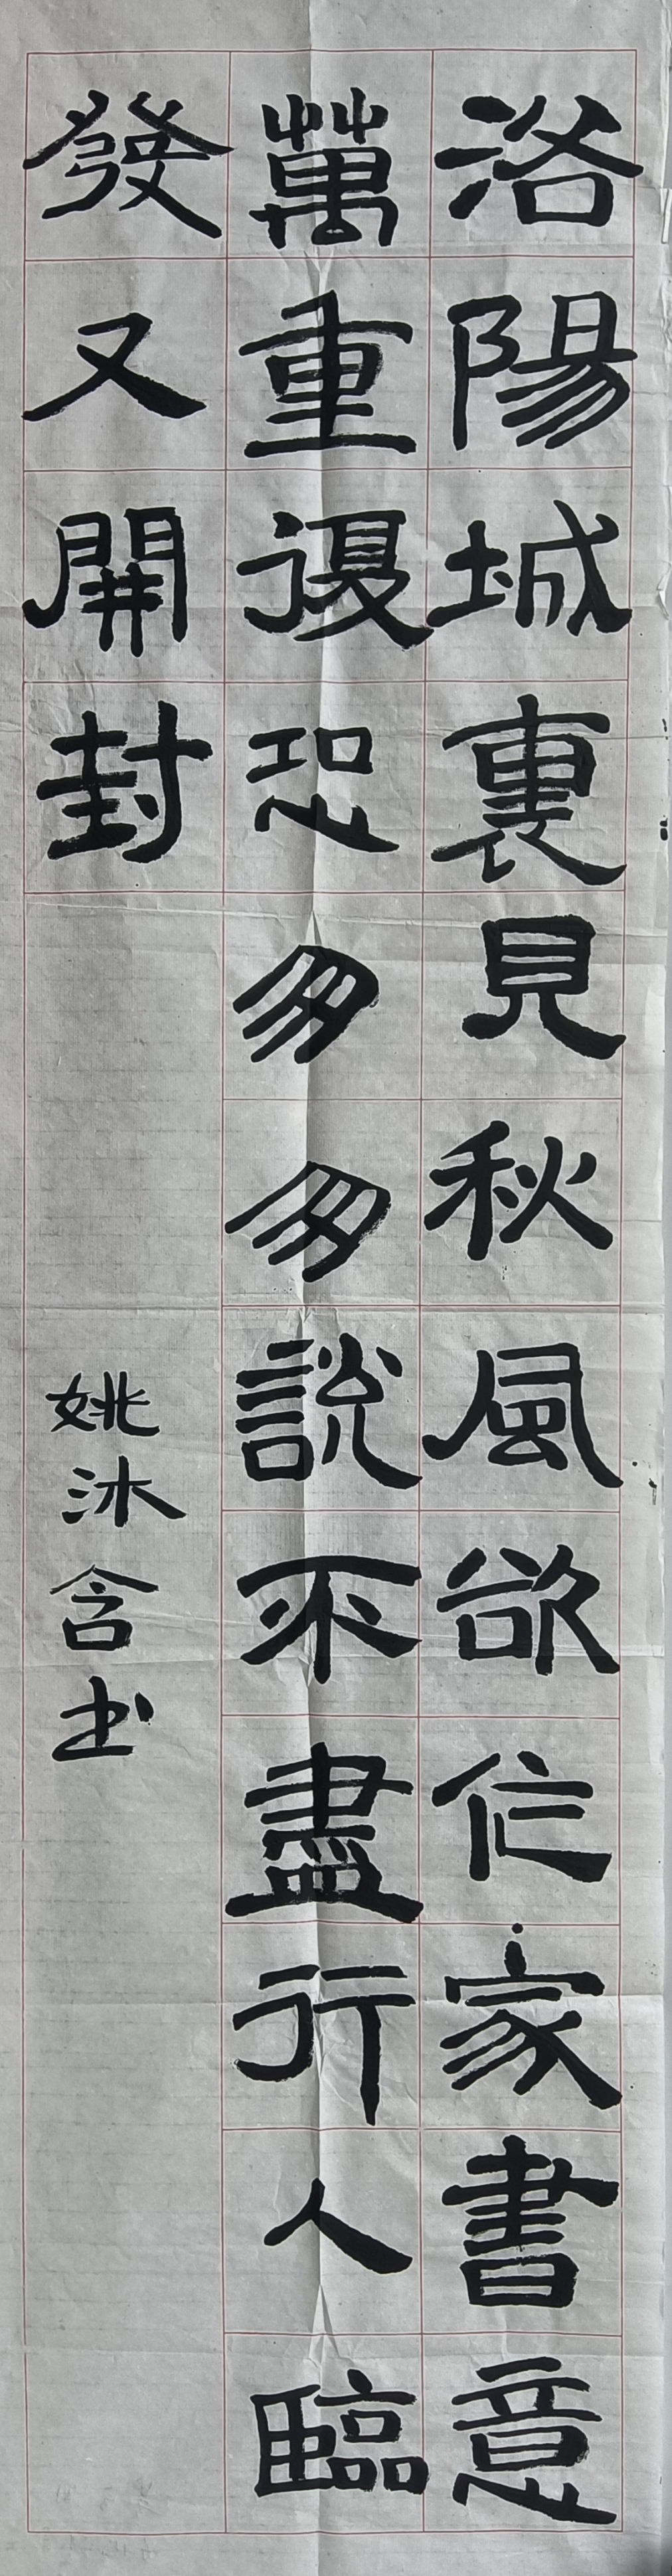 洛陽城裏見秋風欲作家書意
萬重復恐匆匆說不盡行人臨
發又開封
姚沐含书